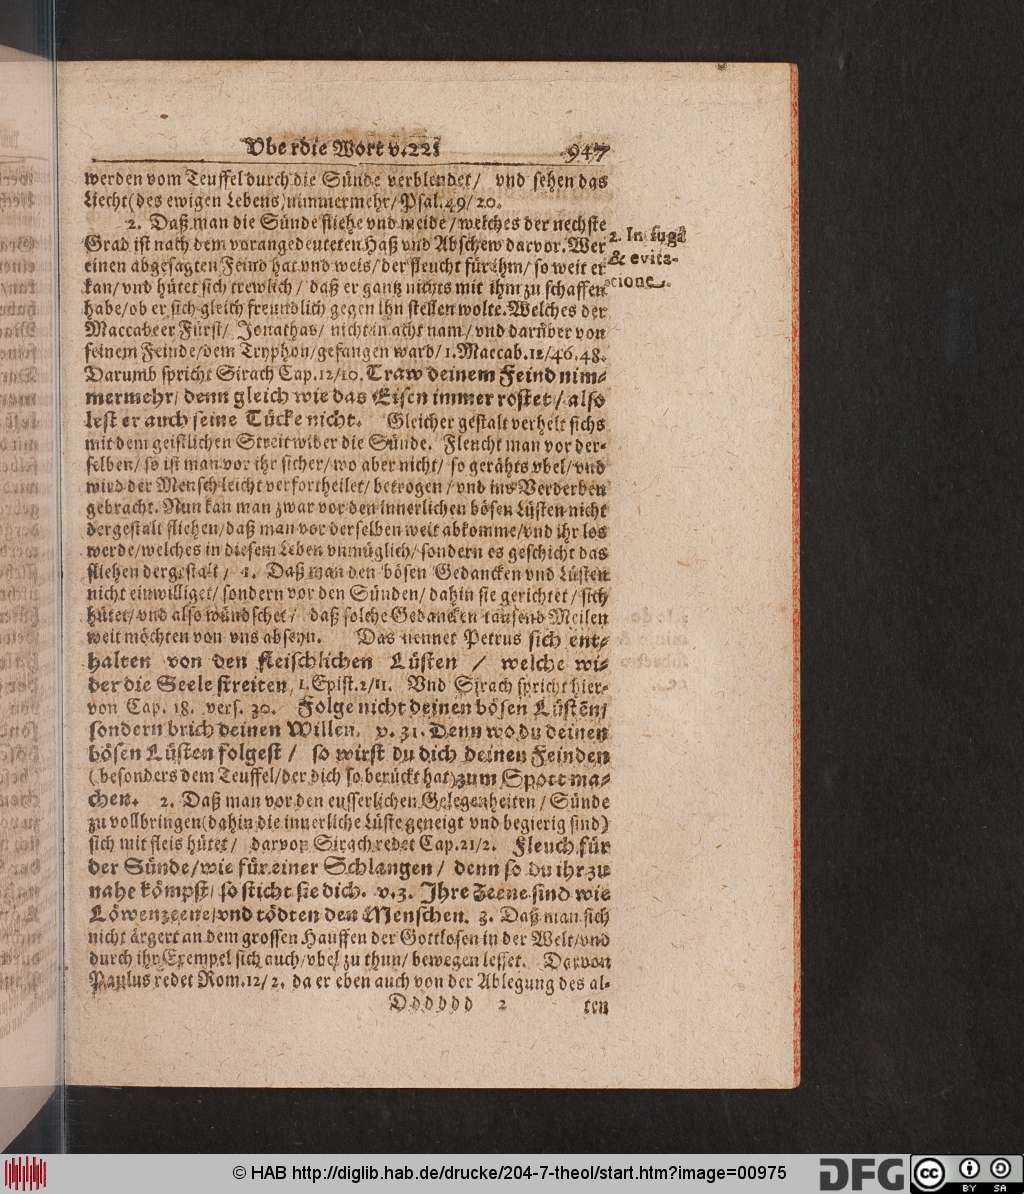 Vbe rdie Wort v.22.
947
werden vom Teuffel durch die Sünde verblendet/ vnd sehen das
Liecht (des ewigen Lebens) nimmermehr/ Psal.49/20.
2. Daß man die Sünde fliehe vnd meide/ welches der nechste
Grad ist nach dem vorangedeuteten Haß vnd Abschew darvor. Wer
einen abgesagten Feind hat vnd weis/ der fleucht für ihm/ so weit er
kan/ vnd hütet sich trewlich/ daß er gantz nichts mit ihm zu schaffen
habe/ ob er sich gleich freundlich gegen ihn stellen wolte. Welches der
Maccabeer Fürst/ Jonathas/ nicht in acht nam/ vnd darüber von
seinem Feinde/ dem Tryphon/ gefangen ward/ 1. Maccab.12/46.48.
Darumb spricht Sirach Cap.12/10. Traw deinem Feind nim-
mermehr/ denn gleich wie das Eisen immer rostet/ also
lest er auch seine Tücke nicht. Gleicher gestalt verhelt sichs
mit dem geistlichen Streit wider die Sünde. Fleucht man vor der-
selben/ so ist man vor ihr sicher/ wo aber nicht/ so gerähts vbel/ vnd
wird der Mensch leicht verfortheilet/ betrogen/ vnd ins Verderben
gebracht. Nun kan man zwar vor den innerlichen bösen Lüsten nicht
dergestalt fliehen/ daß man vor derselben weit abkomme/ vnd ihr los
werde/ welches in diesem Leben vnmüglich/ sondern es geschicht das
fliehen dergestalt/ 1. Daß man den bösen Gedancken vnd Lüsten
nicht einwilliget/ sondern vor den Sünden/ dahin sie gerichtet/ sich
hütet/ vnd also wündschet/ daß solche Gedancken tausend Meilen
weit möchten von vns abseyn. Das nennet Petrus sich ent-
halten von den fleischlichen Lüsten / welche wi-
der die Seele streiten, 1. Epist.2/11. Vnd Sirach spricht hier-
von Cap. 18. vers. 30. Folge nicht deinen bösen Lüstēn/
sondern brich deinen Willen. v. 31. Denn wo du deinen
bösen Lüsten folgest/ so wirst du dich deinen Feinden
(besonders dem Teuffel/ der dich so berückt hat) zum Spott ma-
chen. 2. Daß man vor den eusserlichen Gelegenheiten/ Sünde
zu vollbringen (dahin die innerliche Lüste geneigt vnd begierig sind)
sich mit fleis hütet/ darvon Sirach redet Cap.21/2. Fleuch für
der Sünde/ wie für einer Schlangen/ denn so du ihr zu
nahe kömpst/ so sticht sie dich. v.3. Ihre Zeene sind wie
Löwenzeene/ vnd tödten den Menschen. 3. Daß man sich
nicht ärgert an dem grossen Hauffen der Gottlosen in der Welt/ vnd
durch ihr Exempel sich auch/ vbel zu thun/ bewegen lesset. Darvon
Paulus redet Rom.12/2. da er eben auch von der Ablegung des al-
Dddddd 2
ten
2. In fugâ
& evita-
tione.
© HAB http://diglib.hab.de/drucke/204-7-theol/start.htm?image=00975
DFG
cc
BY SA